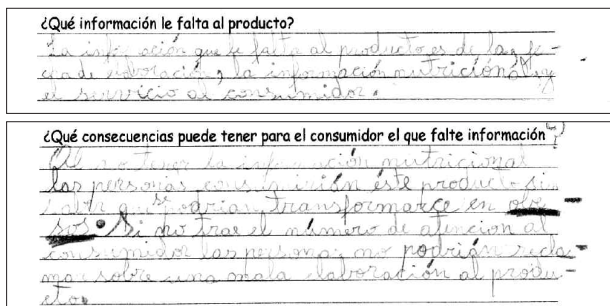 ¿Qué información le falta al producto?
La información que le falta al producto es de la, fe-
cha de elaboración, la información nutricional y
el servicio al consumidor.
¿Qué consecuencias puede tener para el consumidor el que falte información?
Al no tener la información nutricional
las personas consumirían éste producto sin
saber que se podrían transformarce en obe-
sos. Si no trae el número de atención al
consumidor las personas no podrían recla-
mar sobre una mala elaboración al produ-
cto.